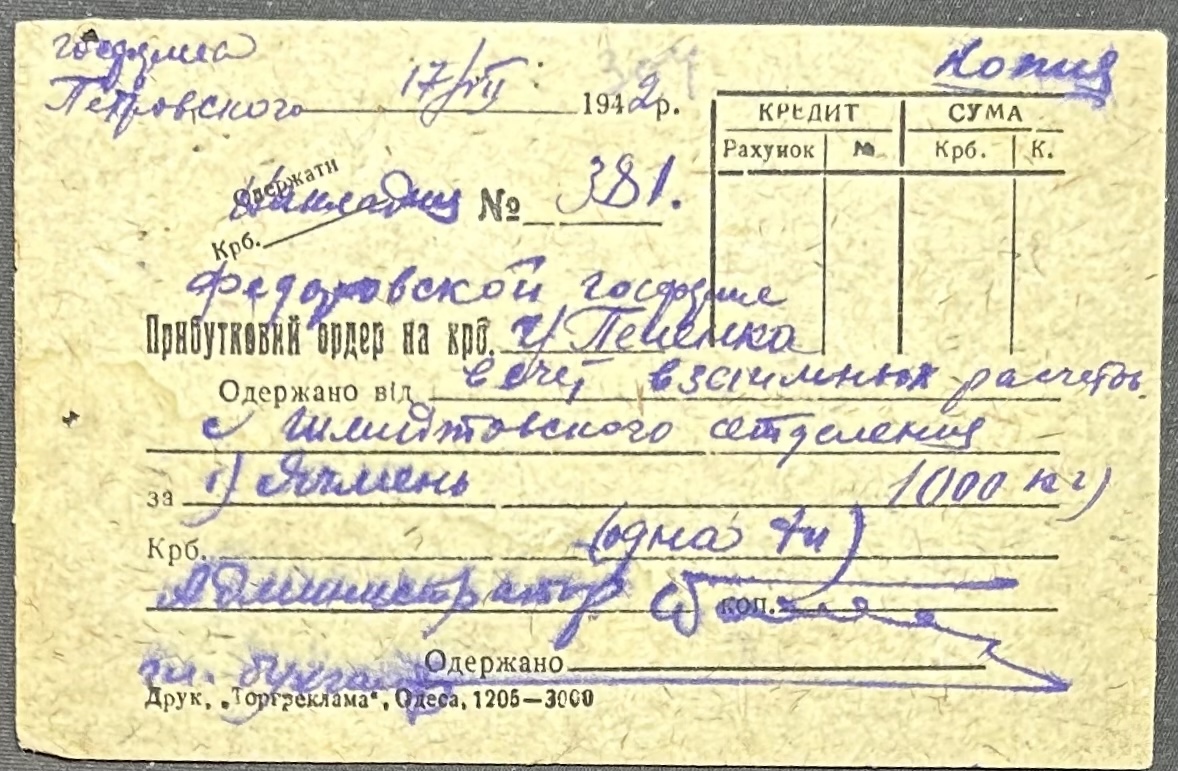 госфумса
Петровского 17/VII 1942 р.
Копия
КРЕДИТ СУМА
Рахунок № Крб. К.
Одержати
Накладная № 381.
Крб.
Федоровской госфуме
Прибутковий ордер на крб. ч/ Пененка
Одержано від в счет взаимных расчетов.
с Шмидтовского отделения
за 1) Ячмень 1000 кг)
Крб. (одна тн)
Администратор коп.
гл. бухгал Одержано
Друк, „Торгреклама“, Одеса, 1205—3000